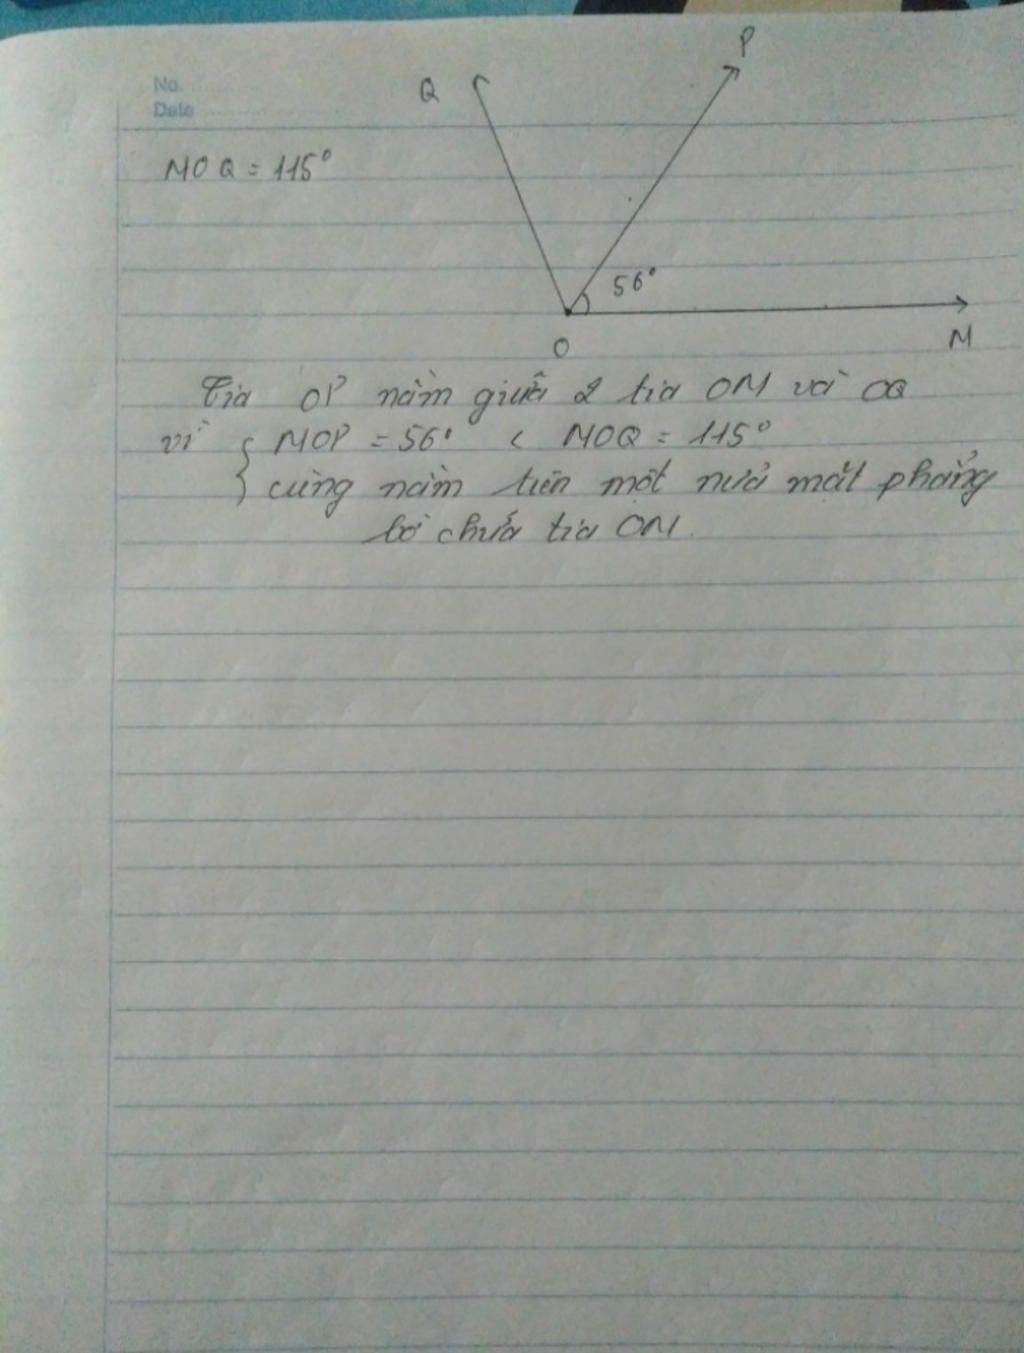 Q
P
No.
Date
MOQ = 115°
56°
O
M
Tia OP nằm giữa 2 tia OM và OQ
vì { MOP = 56° < MOQ = 115°
cùng nằm trên một nửa mặt phẳng
bờ chứa tia OM.